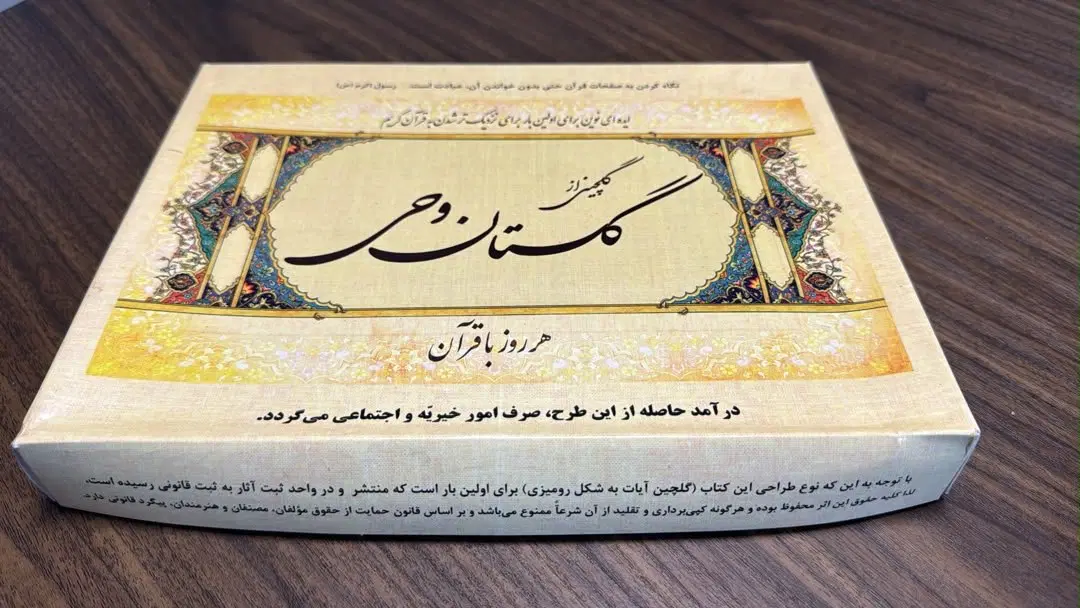 نگاه کردن به صفحات قرآن حتی بدون خواندن آن، عبادت است. رسول اکرم (ص)
ایده ای نوین برای اولین بار برای نزدیک تر شدن به قرآن کریم
گلچینی از
گلستان وحی
هر روز با قرآن
در آمد حاصله از این طرح، صرف امور خیریّه و اجتماعی می‌گردد.
با توجه به این که نوع طراحی این کتاب (گلچین آیات به شکل رومیزی) برای اولین بار است که منتشر و در واحد ثبت آثار به ثبت قانونی رسیده است،
لذا کلیه حقوق این اثر محفوظ بوده و هرگونه کپی‌برداری و تقلید از آن شرعاً ممنوع می‌باشد و بر اساس قانون حمایت از حقوق مؤلفان، مصنفان و هنرمندان، پیگرد قانونی دارد.